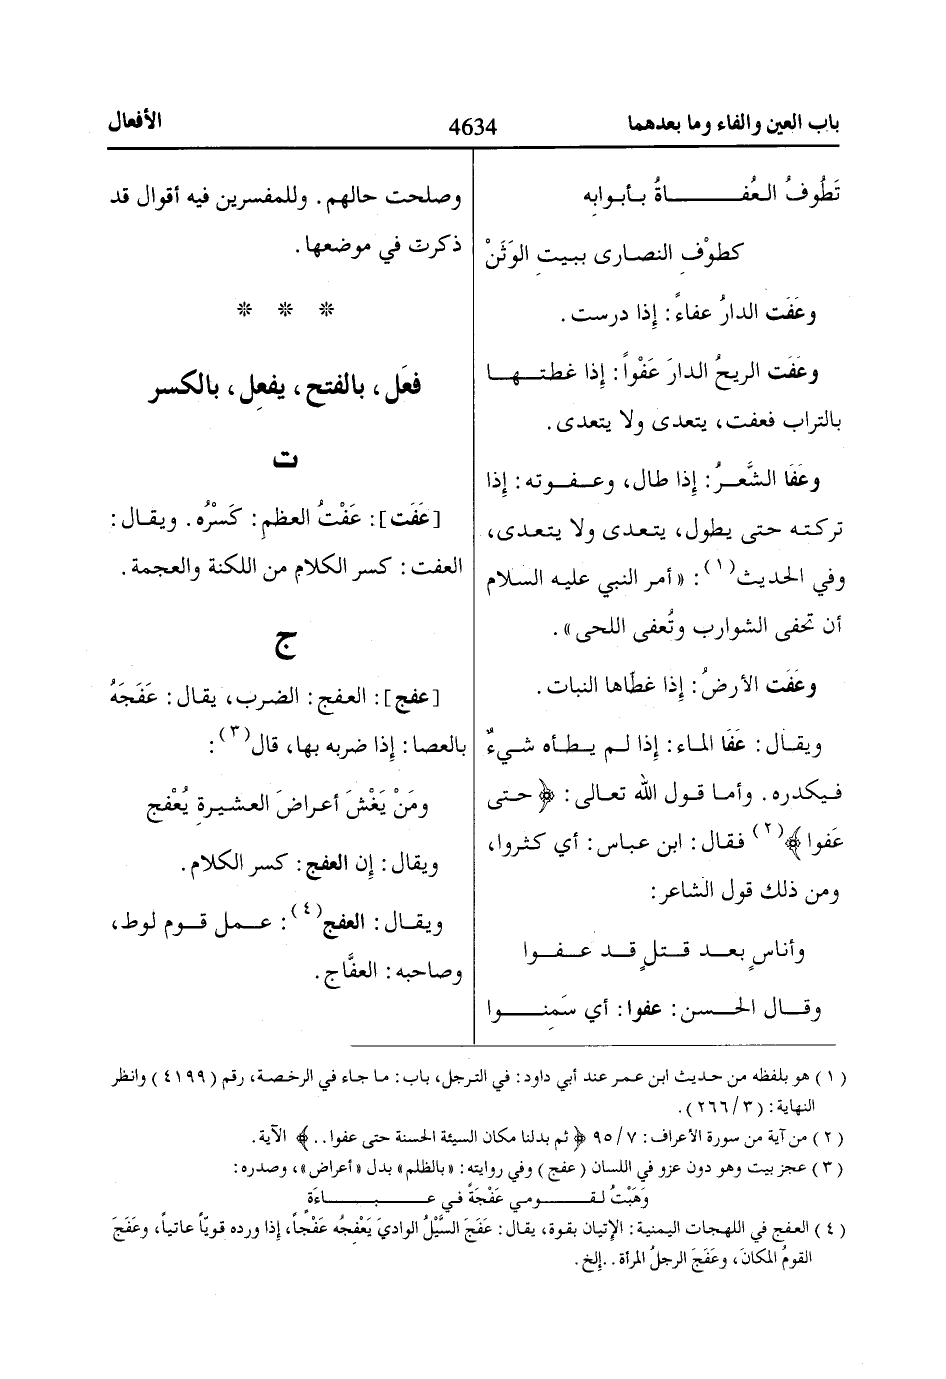 باب العين والفاء وما بعدهما
4634
الأفعال
تَطُوفُ العُفَاةُ بأبوابه
كطوْفِ النصارى ببيتِ الوَثَنْ
وعَفَت الدارُ عفاءً: إذا درست.
وعَفَت الريحُ الدارَ عَفْواً: إذا غطتها
بالتراب فعفت، يتعدى ولا يتعدى.
وعَفَا الشَّعرُ: إذا طال، وعفوته: إذا
تركته حتى يطول، يتعدى ولا يتعدى،
وفي الحديث(١): «أمر النبي عليه السلام
أن تحفى الشوارب وتُعفى اللحى».
وعَفَت الأرضُ: إذا غطّاها النبات.
ويقال: عَفَا الماء: إذا لم يطأه شيءٌ
فيكدره. وأما قول الله تعالى: ﴿حتى
عَفوا﴾(٢) فقال: ابن عباس: أي كثروا،
ومن ذلك قول الشاعر:
وأناسٍ بعد قتلٍ قد عفوا
وقال الحسن: عفوا: أي سَمِنوا
وصلحت حالهم. وللمفسرين فيه أقوال قد
ذكرت في موضعها.
* * *
فعَل، بالفتح، يفعِل، بالكسر
ت
[عَفَت]: عَفْتُ العظمِ: كَسْرُه. ويقال:
العفت: كسر الكلام من اللكنة والعجمة.
ج
[عفج]: العفج: الضرب، يقال: عَفَجَهُ
بالعصا: إذا ضربه بها، قال(٣):
ومَنْ يَغْشَ أعراضَ العشيرةِ يُعْفجِ
ويقال: إن العفج: كسر الكلام.
ويقال: العفج(٤): عمل قوم لوط،
وصاحبه: العفَّاج.
(١) هو بلفظه من حديث ابن عمر عند أبي داود: في الترجل، باب: ما جاء في الرخصة، رقم (٤١٩٩) وانظر
النهاية: (٣/٢٦٦).
(٢) من آية من سورة الأعراف: ٧/ ٩٥ ﴿ثم بدلنا مكان السيئة الحسنة حتى عفوا..﴾ الآية.
(٣) عجز بيت وهو دون عزو في اللسان (عفج) وفي روايته: «بالظلم» بدل «أعراض»، وصدره:
وَهَبْتُ لقومي عَفْجَةً في عباءَةٍ
(٤) العفج في اللهجات اليمنية: الإتيان بقوة، يقال: عَفَجَ السَّيْلُ الوادي يَعْفِجُه عَفْجاً، إذا ورده قويّاً عاتياً، وعَفَجَ
القومُ المكانَ، وعَفَجَ الرجلُ المرأة..إلخ.